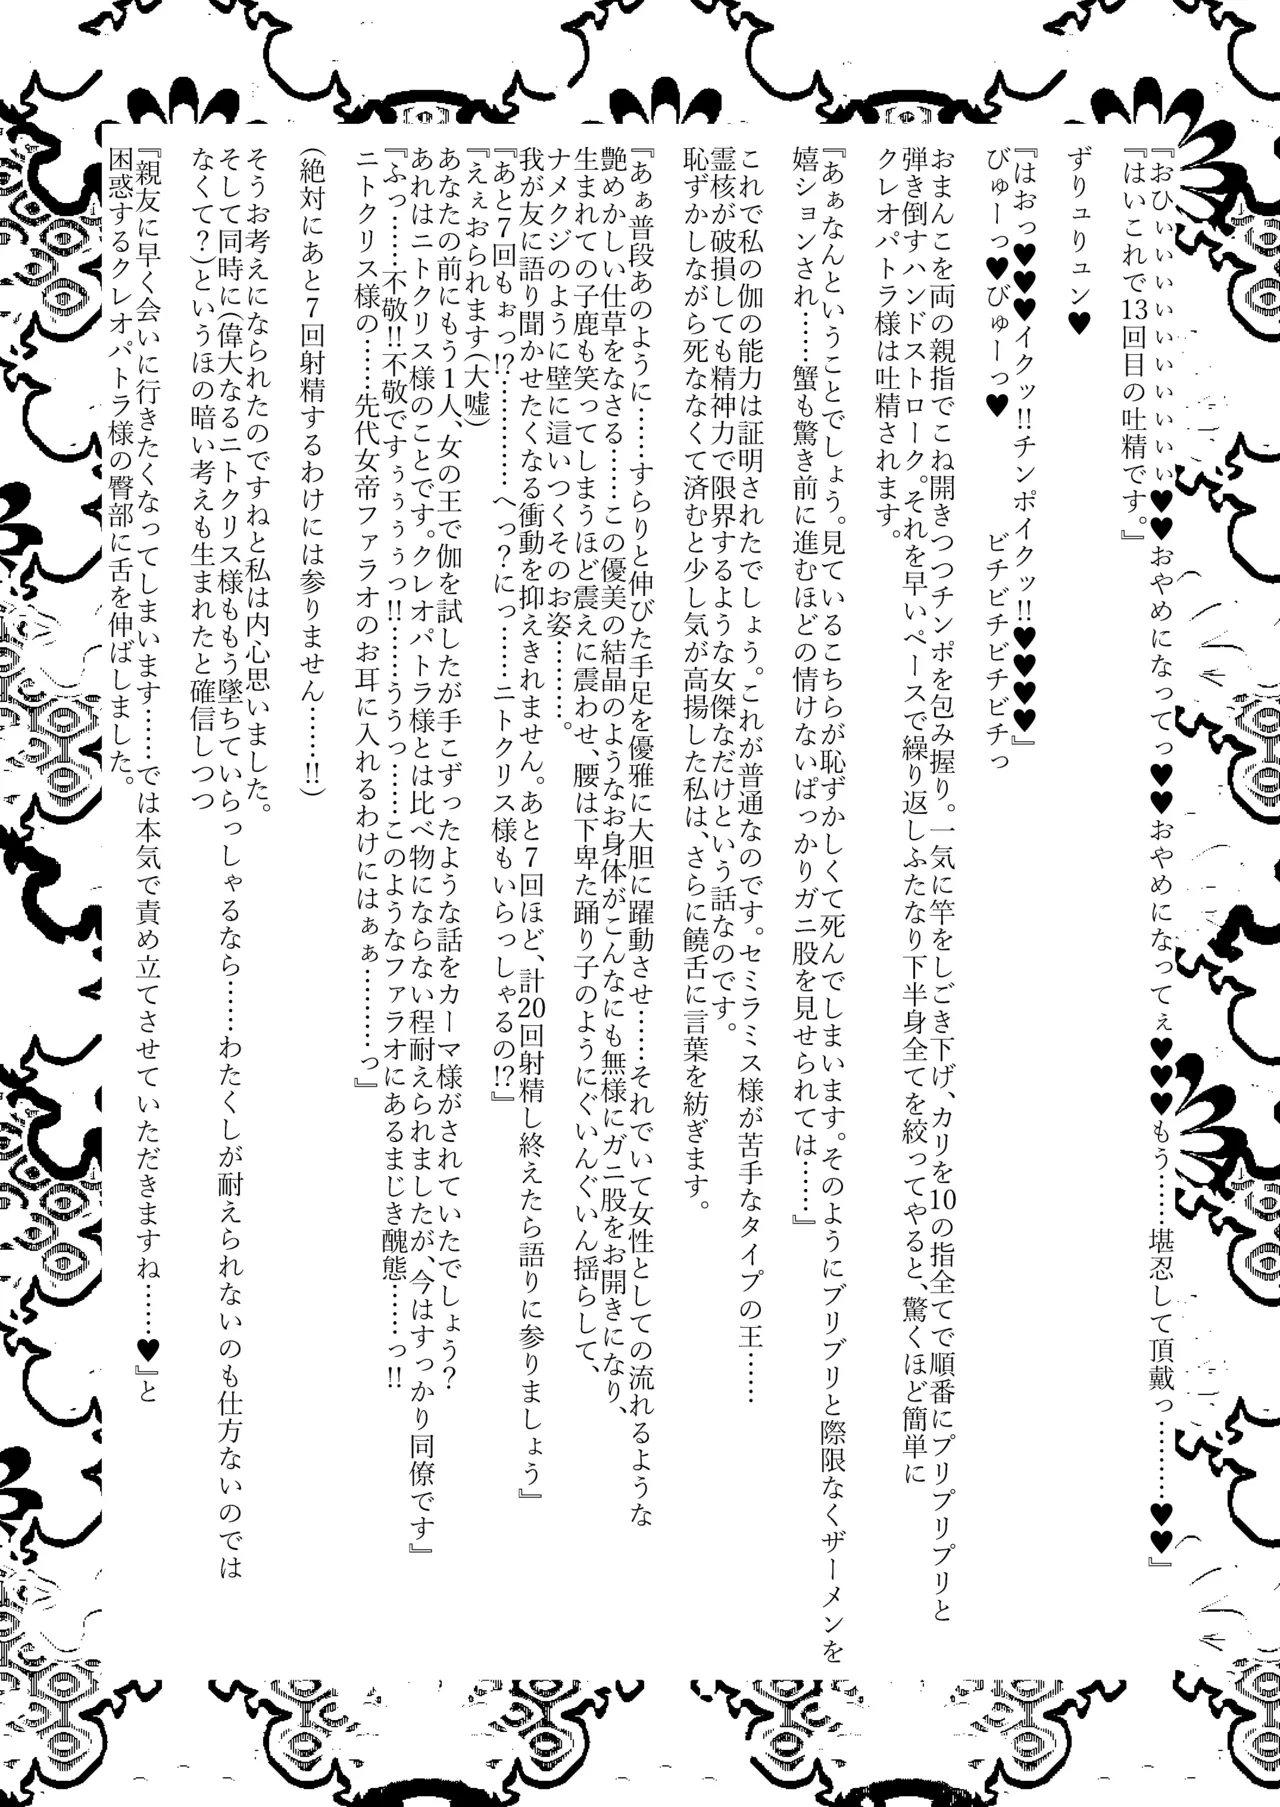 『おひぃぃぃぃぃぃぃぃぃ♥♥おやめになってっ♥♥おやめになってぇ♥♥♥もう……堪忍して頂戴っ………♥♥』
『はいこれで13回目の吐精です。』
ずりュりュン♥
『はおっ♥♥♥イクッ!!チンポイクッ!!♥♥♥♥』
びゅーっ♥びゅーっ♥　ビチビチビチビチっ
おまんこを両の親指でこね開きつつチンポを包み握り。一気に竿をしごき下げ、カリを10の指全てで順番にプリプリプリと
弾き倒すハンドストローク。それを早いペースで繰り返しふたなり下半身全てを絞ってやると、驚くほど簡単に
クレオパトラ様は吐精されます。
『あぁなんということでしょう。見ているこちらが恥ずかしくて死んでしまいます。そのようにブリブリと際限なくザーメンを
嬉ションされ……蟹も驚き前に進むほどの情けないぱっかりガニ股を見せられては……』
これで私の伽の能力は証明されたでしょう。これが普通なのです。セミラミス様が苦手なタイプの王……
霊核が破損しても精神力で限界するような女傑なだけという話なのです。
恥ずかしながら死ななくて済むと少し気が高揚した私は、さらに饒舌に言葉を紡ぎます。
『あぁ普段あのように……すらりと伸びた手足を優雅に大胆に躍動させ……それでいて女性としての流れるような
艶めかしい仕草をなさる……この優美の結晶のようなお身体がこんなにも無様にガニ股をお開きになり、
生まれての子鹿も笑ってしまうほど震えに震わせ、腰は下卑た踊り子のようにぐいんぐいん揺らして、
ナメクジのように壁に這いつくそのお姿………。
我が友に語り聞かせたくなる衝動を抑えきれません。あと7回ほど、計20回射精し終えたら語りに参りましょう』
『あと7回もぉっ!?…………へっ？にっ……ニトクリス様もいらっしゃるの!?』
『えぇおられます(大嘘)
あなたの前にもう1人、女の王で伽を試したが手こずったような話をカーマ様がされていたでしょう？
あれはニトクリス様のことです。クレオパトラ様とは比べ物にならない程耐えられましたが、今はすっかり同僚です』
『ふっ……不敬!!不敬ですぅぅぅぅっ!!……ううっ……このようなファラオにあるまじき醜態……っ!!
ニトクリス様の……先代女帝ファラオのお耳に入れるわけにはぁぁ………っ』
(絶対にあと7回射精するわけには参りません……!!)
そうお考えになられたのですねと私は内心思いました。
そして同時に(偉大なるニトクリス様ももう墜ちていらっしゃるなら……わたくしが耐えられないのも仕方ないのでは
なくて？)というほの暗い考えも生まれたと確信しつつ
『親友に早く会いに行きたくなってしまいます……では本気で責め立てさせていただきますね……♥』と
困惑するクレオパトラ様の臀部に舌を伸ばしました。